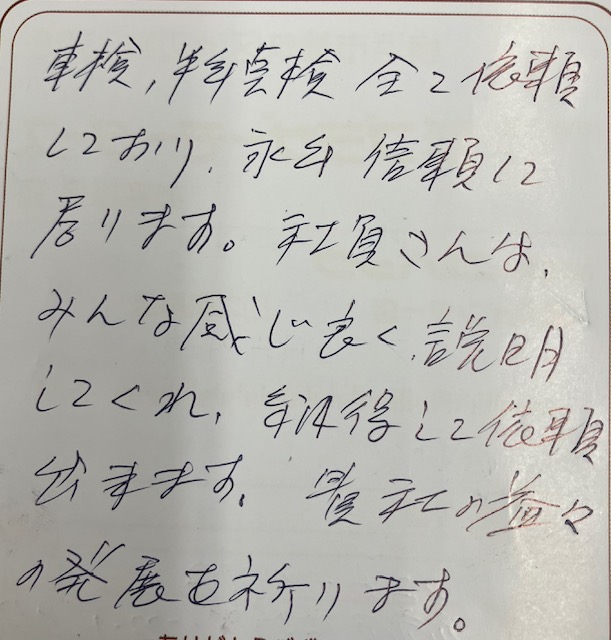 車検,半年点検 全て依頼
しており、永年 信頼して
居ります。社員さんは、
みんな感じ良く、説明
してくれ、納得して依頼
出来ます。貴社の益々
の発展を祈ります。